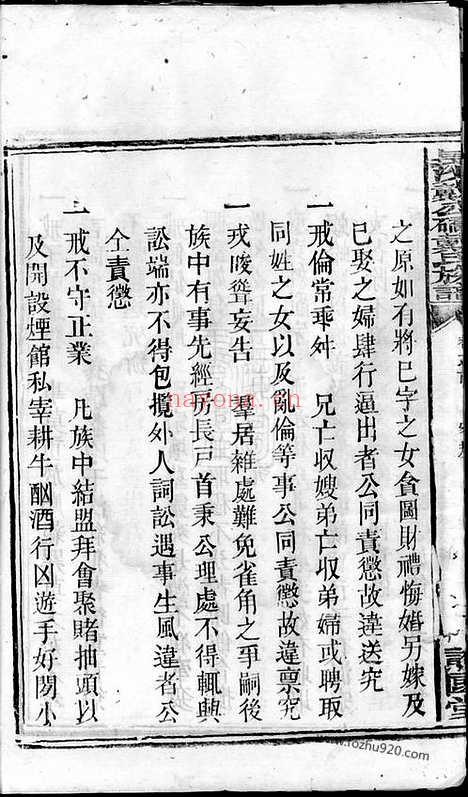 之原如有將已字之女貪圖財禮悔婚另嫁及
已娶之婦肆行逼出者公同責懲故違送究
一戒倫常乖舛　兄亡收嫂弟亡收弟婦或聘取
同姓之女以及亂倫等事公同責懲故違禀究
一戒唆聳妄告　羣居雜處難免雀角之爭嗣後
族中有事先經房長戸首秉公理處不得輒興
訟端亦不得包攬外人詞訟遇事生風違者公
仝責懲
一戒不守正業　凡族中結盟拜會聚賭抽頭以
及開設煙館私宰耕牛酗酒行凶遊手好閑小
nayona.cn
www.fozhu920.com